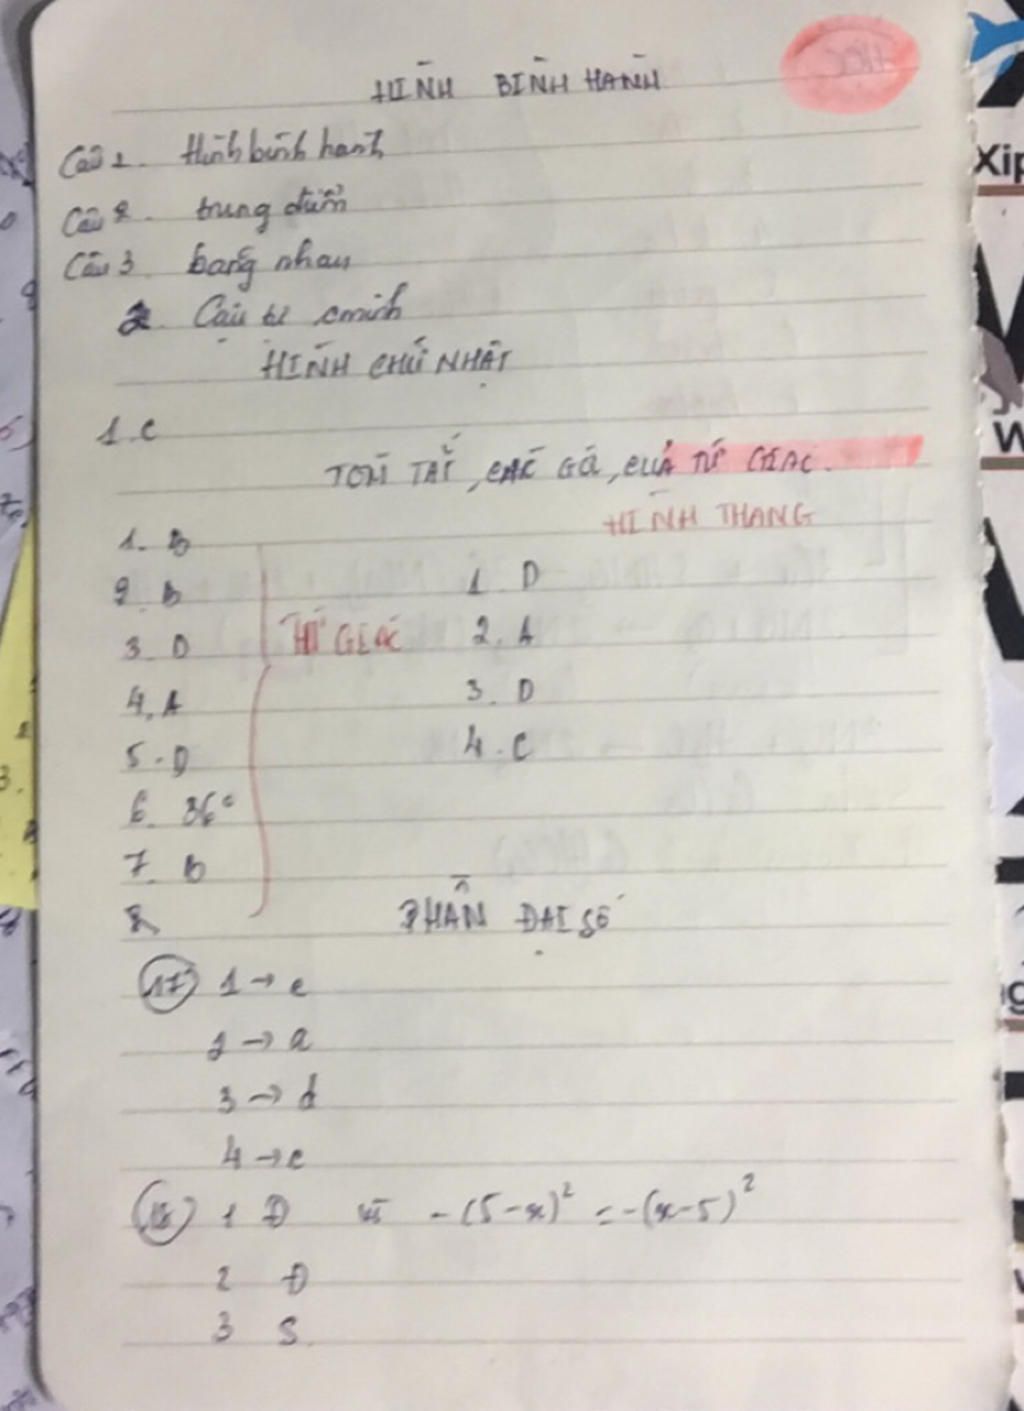 HÌNH BÌNH HÀNH
Câu 1. Hình bình hành
Câu 2. trung điểm
Câu 3 bằng nhau
2. Câu tự cminh
HÌNH CHỮ NHẬT
1. C
TÓM TẮT, CÁC GÓC, CỦA TỨ GIÁC.
HÌNH THANG
1. B
2. B
3. D
4. A
5. D
6. 36°
7. B
8
TỨ GIÁC
1. D
2. A
3. D
4. C
PHẦN ĐẠI SỐ
17 1 → e
2 → a
3 → d
4 → c
18 1 Đ vì -(5-x)² = -(x-5)²
2 Đ
3 S
Xip
W